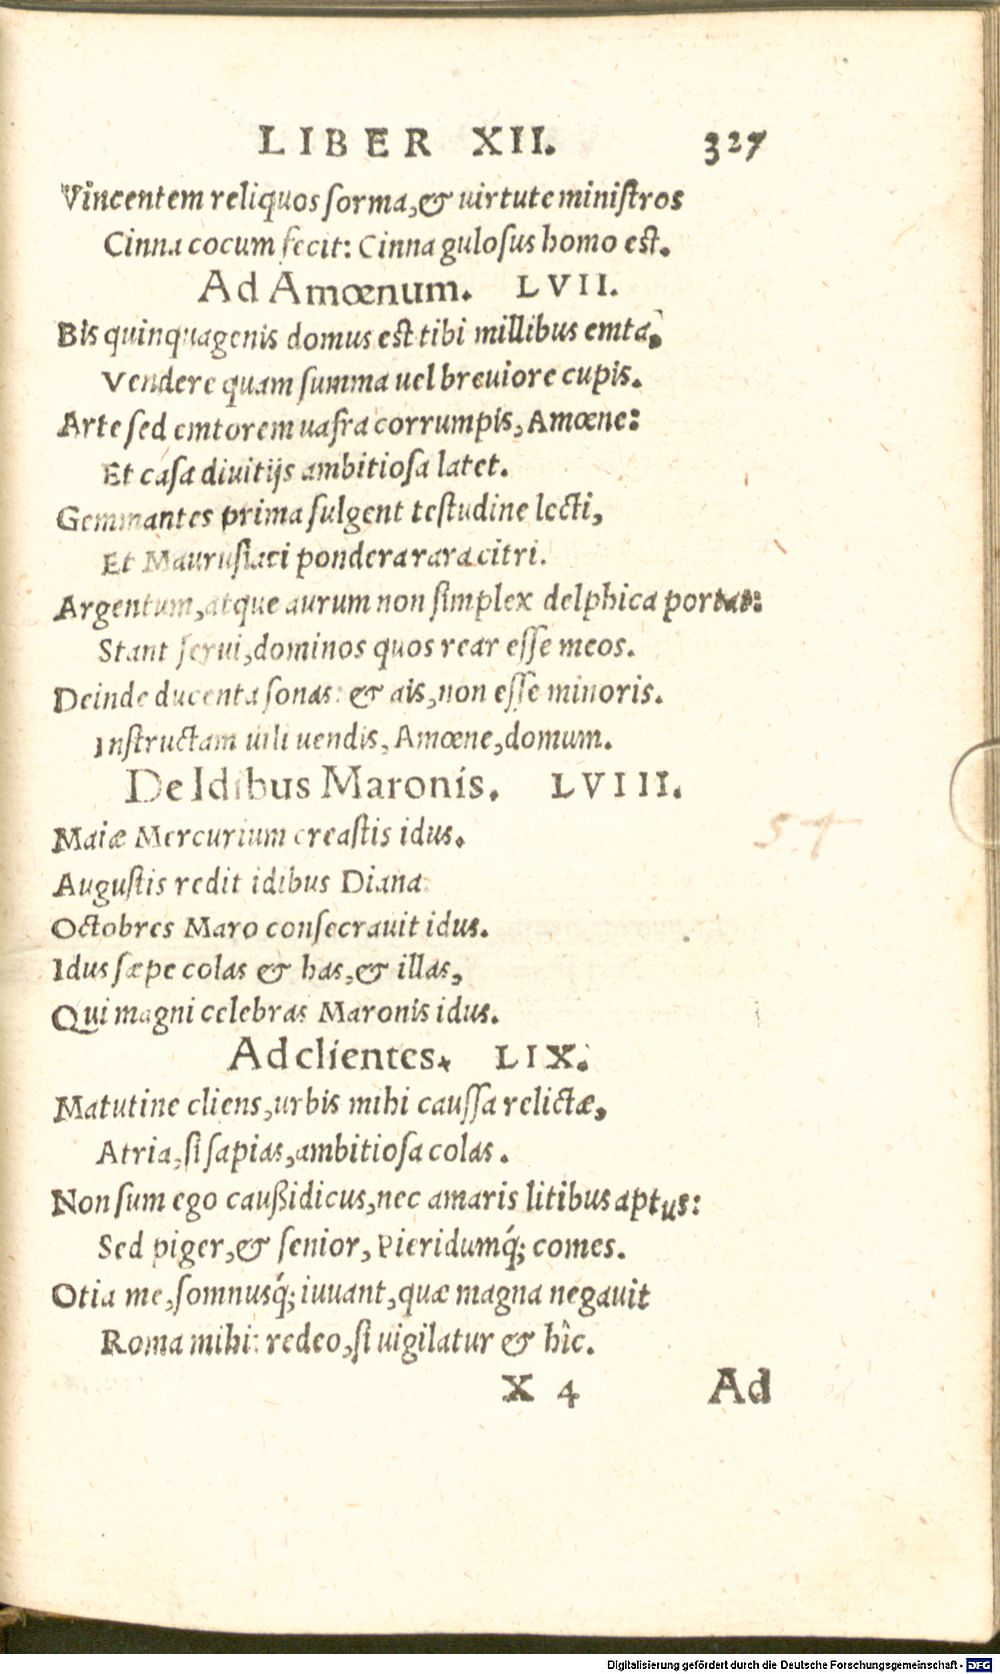 LIBER XII. 327
Vincentem reliquos forma, & uirtute miniſtros
Cinna cocum fecit: Cinna guloſus homo est.
Ad Amœnum. LVII.
Bis quinquagenis domus est tibi millibus emta,
Vendere quam ſumma uel breviore cupis.
Arte ſed emtorem uafra corrumpis, Amœne:
Et caſa divitijs ambitioſa latet.
Gemmantes prima fulgent teſtudine lecti,
Et Mauruſiaci pondera rara citri.
Argentum, atque aurum non ſimplex delphica portat:
Stant ſervi, dominos quos rear eſſe meos.
Deinde ducenta ſonas: & ais, non eſſe minoris.
Inſtructam uili uendis, Amœne, domum.
De Idibus Maronis. LVIII.
Maiæ Mercurium creaſtis idus.
Auguſtis redit idibus Diana
Octobres Maro conſecravit idus.
Idus ſæpe colas & has, & illas,
Qui magni celebras Maronis idus.
Ad clientes. LIX.
Matutine cliens, urbis mihi cauſſa relictæ,
Atria, ſi ſapias, ambitioſa colas.
Non ſum ego caußidicus, nec amaris litibus aptus:
Sed piger, & ſenior, Pieridumq́; comes.
Otia me, ſomnusq́; iuvant, quæ magna negavit
Roma mihi: redeo, ſi uigilatur & hîc.
X 4 Ad
Digitalisierung gefördert durch die Deutsche Forschungsgemeinschaft - DFG